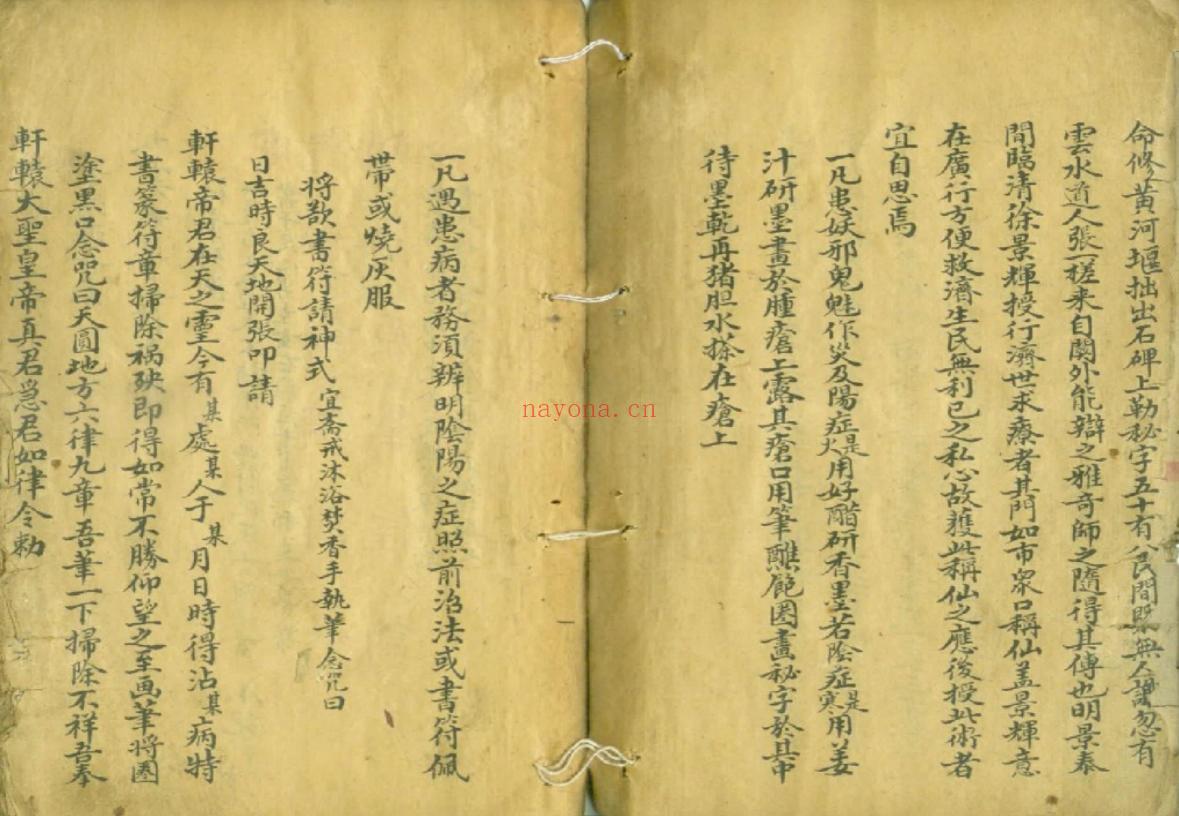 命修黄河堰拙出石碑上勒秘字五十有八民間既無人識忽有
雲水道人張一槎来自関外能辯之雅奇師之隨得其傳也明景泰
間臨清徐景輝授行濟世求療者其門如市衆口稱仙盖景輝意
在廣行方便救濟生民無利已之私心故獲此稱仙之應後授此術者
宜自思焉
一凡患妖邪鬼魅作災及陽症是火用好醋研香墨若陰症是寒用姜
汁研墨畫於腫瘡上露其瘡口用筆醮範圏畫秘字於其中
待墨乾再猪胆水搽在瘡上
一凡遇患病者務須辨明陰陽之症照前治法或書符佩
帶或燒灰服
将欲書符請神式 宜齋戒沐浴焚香手執筆念咒曰
日吉時良天地開張叩請
軒轅帝君在天之靈今有某處某人于某月日時得沾某病特
書篆符章掃除祸殃即得如常不勝仰望之至画筆將圏
塗黒口念咒曰天圓地方六律九章吾筆一下掃除不祥吾奉
軒轅大聖皇帝真君急君如律令勅
nayona.cn